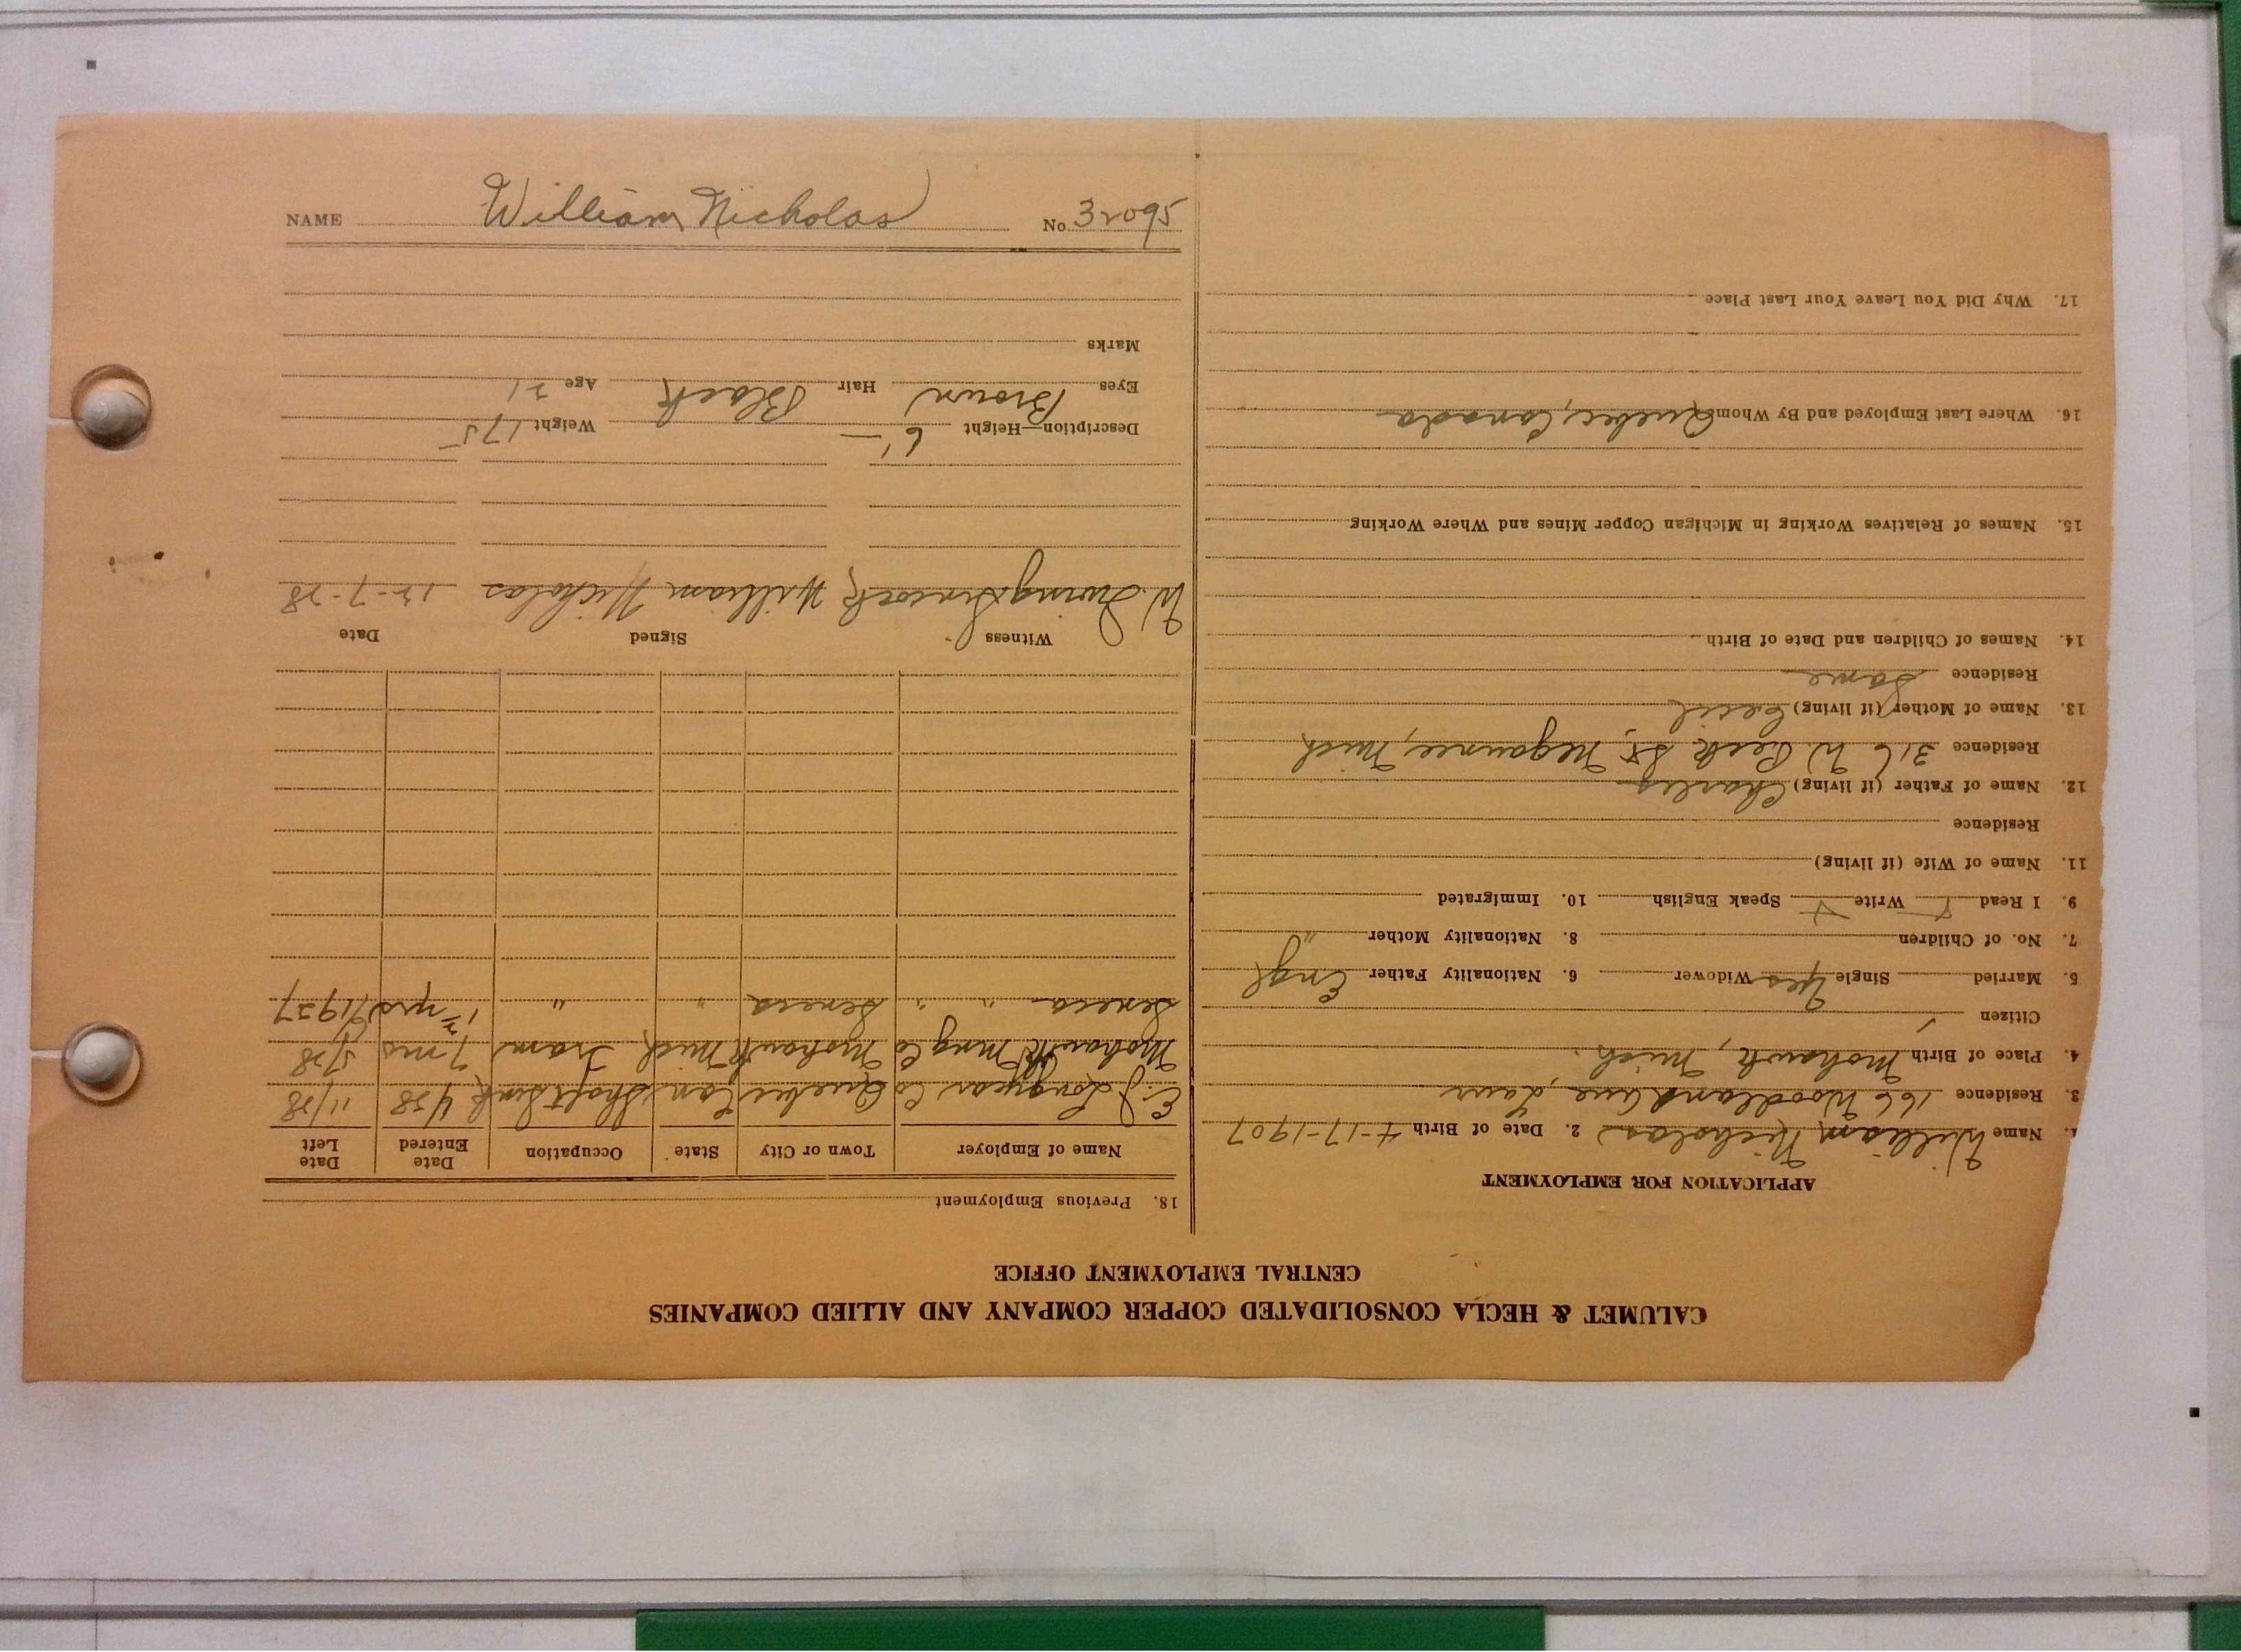 NAME William Nicholas No. 32095
CALUMET & HECLA CONSOLIDATED COPPER COMPANY AND ALLIED COMPANIES
CENTRAL EMPLOYMENT OFFICE
APPLICATION FOR EMPLOYMENT
1. Name William Nicholas 2. Date of Birth 4-17-1907
3. Residence 166 Woodland Ave, Laur
4. Place of Birth Mohawk, Mich.
Citizen ✓
5. Married Single Yes Widower 6. Nationality Father Engl
7. No. of Children 8. Nationality Mother "
9. I Read Write Speak English 10. Immigrated
11. Name of Wife (if living)
Residence
12. Name of Father (if living) Charles
Residence 316 W. Peck St, Negaunee, Mich
13. Name of Mother (if living) Cecil
Residence Same
14. Names of Children and Date of Birth
15. Names of Relatives Working in Michigan Copper Mines and Where Working
16. Where Last Employed and By Whom Quebec, Canada
17. Why Did You Leave Your Last Place
18. Previous Employment
Name of Employer Town or City State Occupation Date Entered Date Left
E. J. Longyear Co Quebec Can Shaft Sink 4/28 11/28
Mohawk Mng Co Mohawk Mich Tram 7 mos 3/28
Seneca " " Seneca " " 1 1/2 yrs 1927
Witness Signed Date
W. Irving William Nicholas 12-7-28
Description—Height 6'— Weight 175
Eyes Brown Hair Black Age 21
Marks